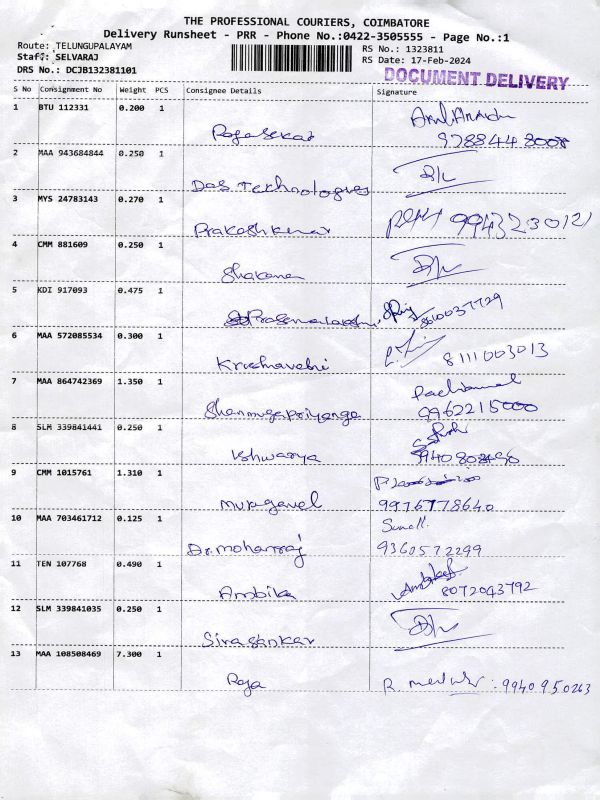 THE PROFESSIONAL COURIERS, COIMBATORE
Delivery Runsheet - PRR - Phone No.:0422-3505555 - Page No.:1
Route: TELUNGUPALAYAM
RS No.: 1323811
Staff: SELVARAJ
RS Date: 17-Feb-2024
DRS No.: DCJB132381101
DOCUMENT DELIVERY
S No Consignment No Weight PCS Consignee Details Signature
1 BTU 112331 0.200 1
Rajasekar 9788448008
2 MAA 943684844 0.250 1
Das Technologies
3 MYS 24783143 0.270 1
Prakashkumar 9943230121
4 CMM 881609 0.250 1
Shakana
5 KDI 917093 0.475 1
8610037729
6 MAA 572085534 0.300 1
Krishnaveni 8111003013
7 MAA 864742369 1.350 1
Shanmugapriyanga 9962215000
8 SLM 339841441 0.250 1
Ishwarya
9 CMM 1015761 1.310 1
Murugavel 9976778640
10 MAA 703461712 0.125 1
Dr. Mohanraj 9360572299
11 TEN 107768 0.490 1
Ambika 8072043792
12 SLM 339841035 0.250 1
Sivasankar
13 MAA 108508469 7.300 1
Raja 9940950263